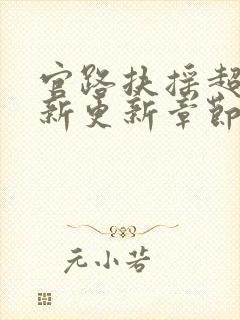 官路扶摇超
新更新章节
元小若